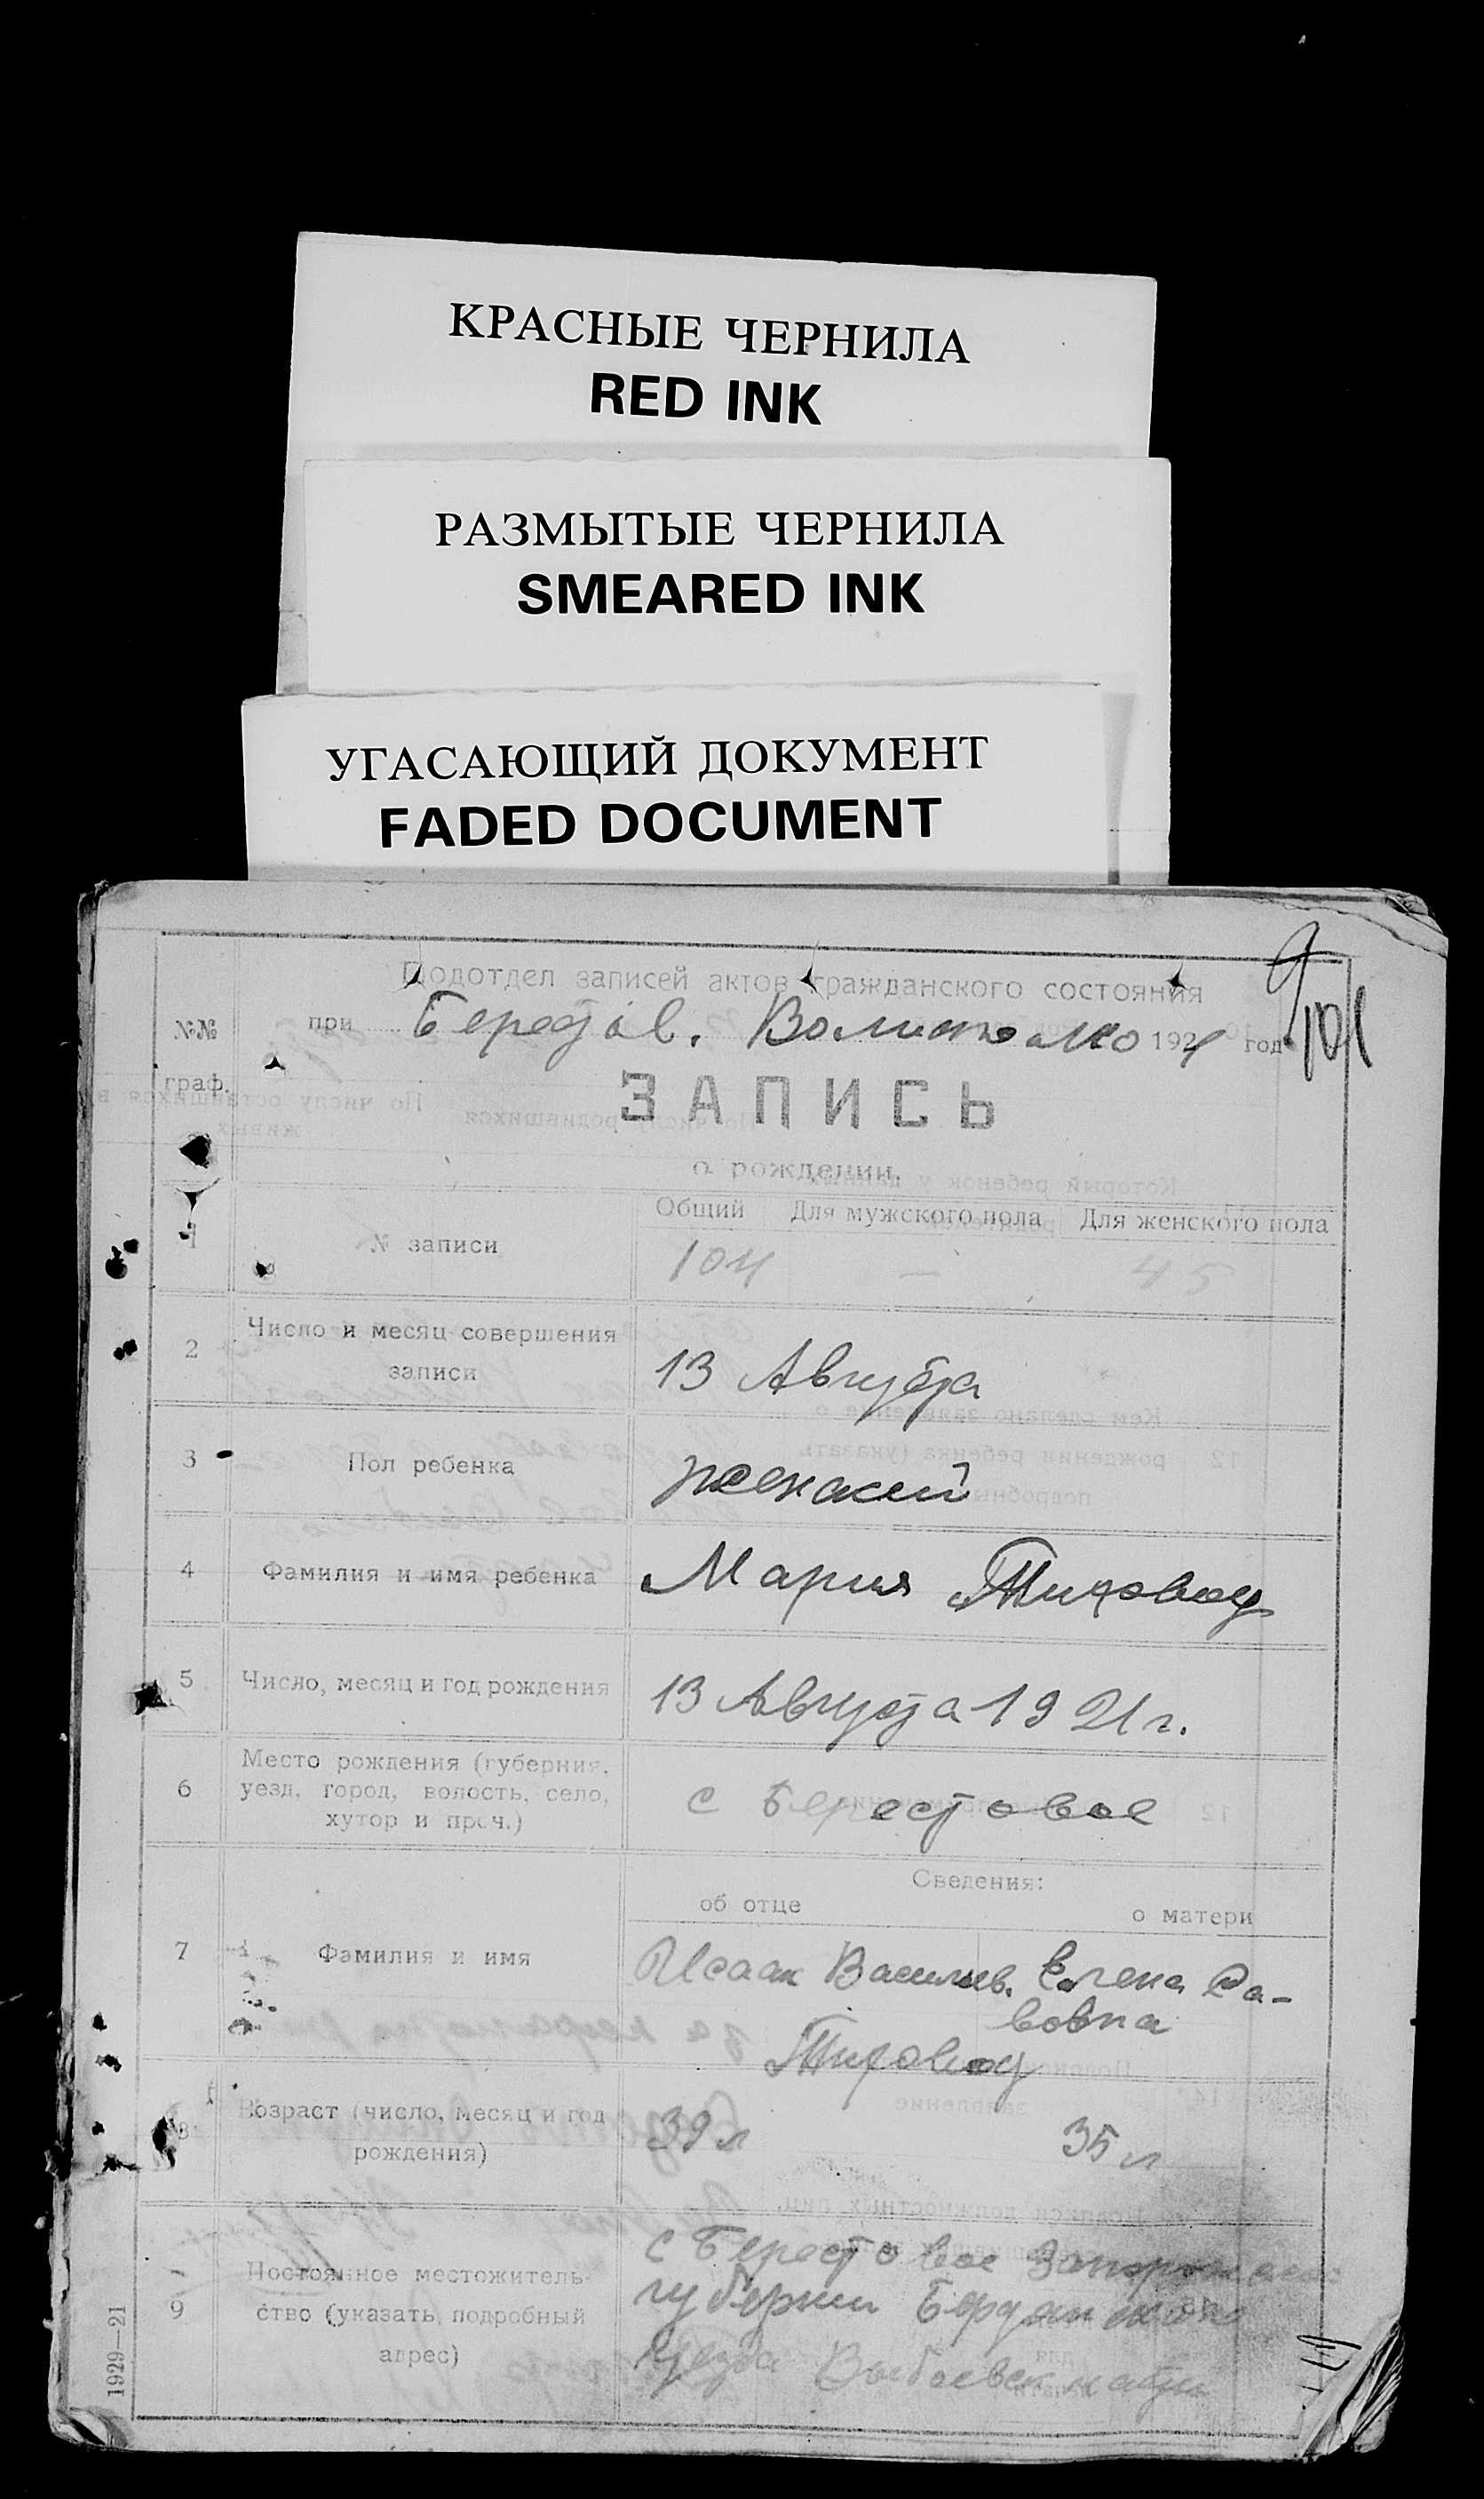 КРАСНЫЕ ЧЕРНИЛА
RED INK
РАЗМЫТЫЕ ЧЕРНИЛА
SMEARED INK
УГАСАЮЩИЙ ДОКУМЕНТ
FADED DOCUMENT
Подотдел записей актов гражданского состояния
№№ граф.
при Берестов. 1921 год
101
ЗАПИСЬ
о рождении.
Общий Для мужского пола Для женского пола
1 № записи 104 — 45
2 Число и месяц совершения
записи 13 Августа
3 Пол ребенка женский
4 Фамилия и имя ребенка Мария
5 Число, месяц и год рождения 13 Августа 1921 г.
Место рождения (губерния,
6 уезд, город, волость, село, с Берестовое
хутор и проч.)
Сведения:
об отце о матери
7 Фамилия и имя Исаак Васильев. Елена Са-
ввовна
8 Возраст (число, месяц и год 39 л 35 л
рождения)
с Берестовое
Постоянное местожитель- губернии Бердянского
9 ство (указать подробный уезда
адрес)
1929—21